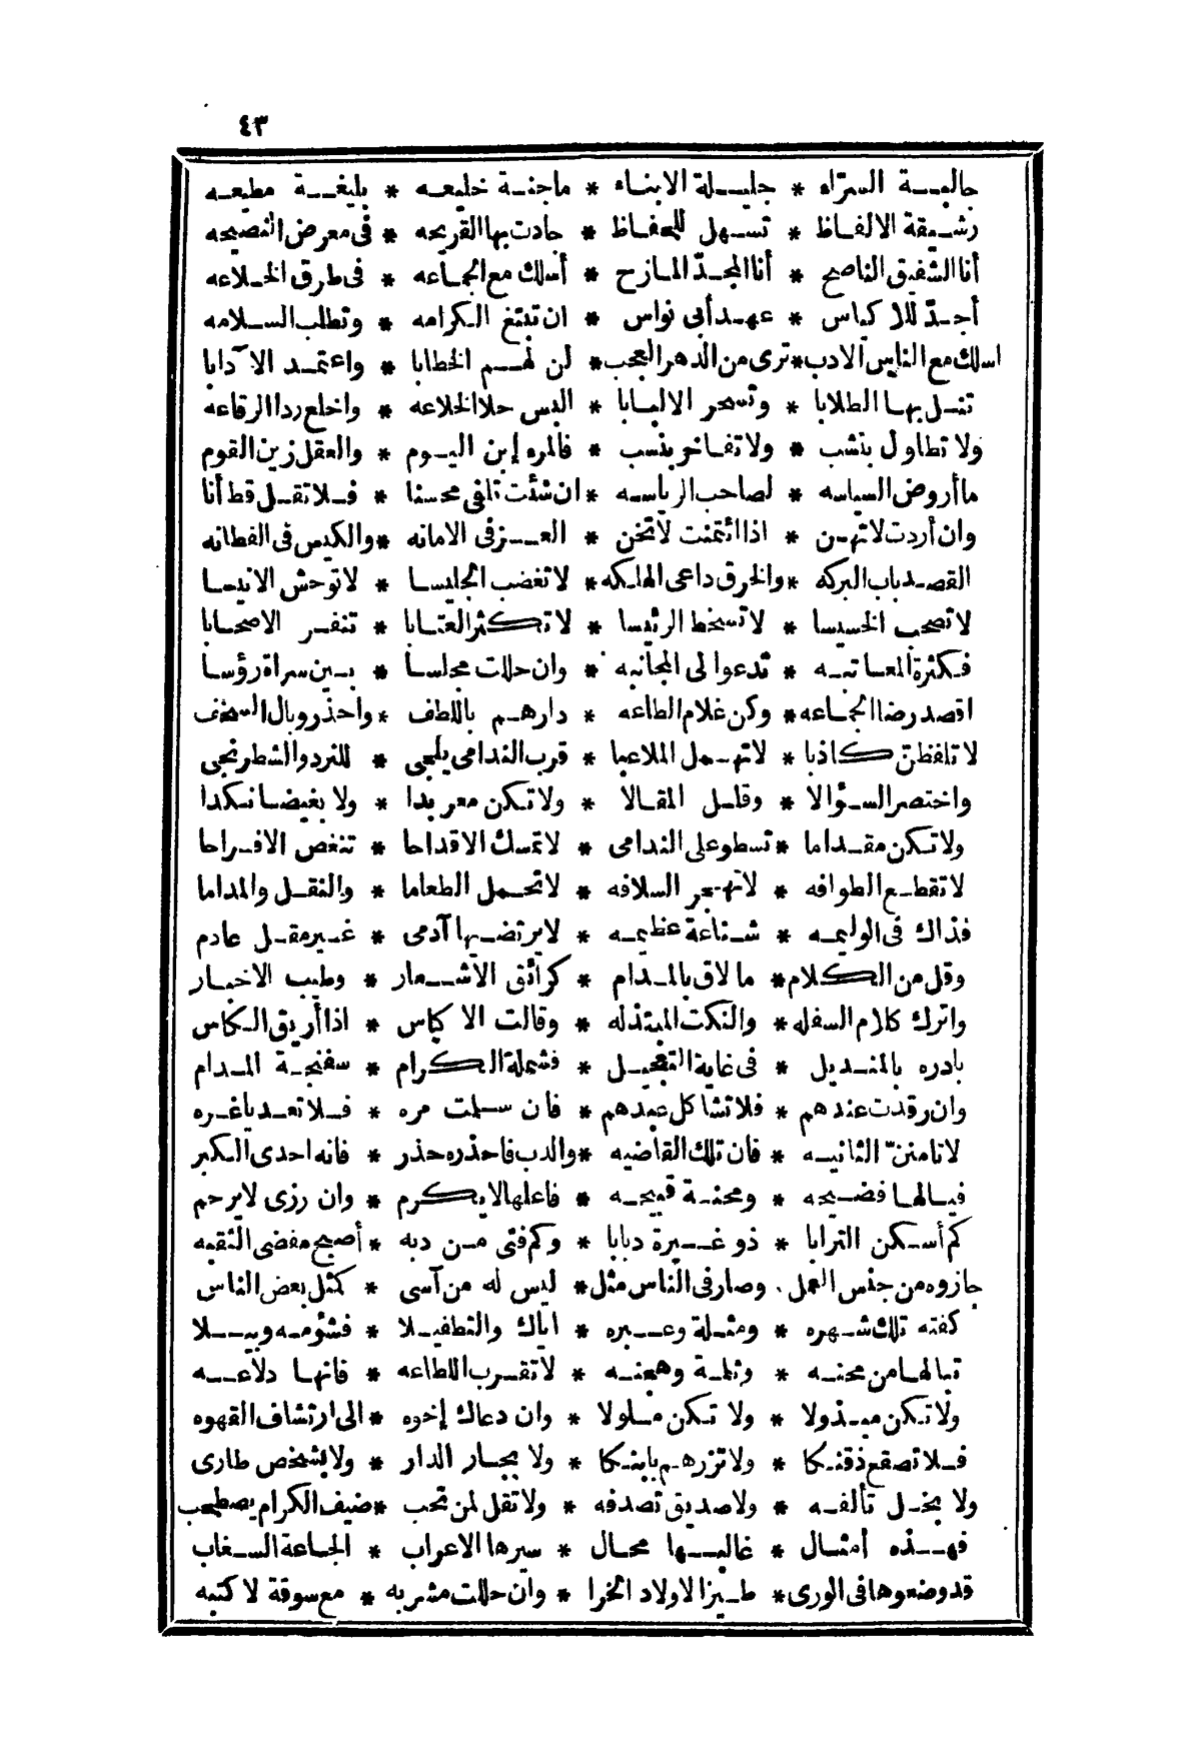 ٤٣
جالبـة السرّاء * جليلة الانباء * ماجنة خليعه * بليغة مطيعه
رشيقة الالفاظ * تسهل للحفاظ * جادت بها القريحه * فى معرض النصيحه
أنا الشفيق الناصح * أنا المجدّ المازح * أسلك مع الجماعه * فى طرق الخلاعه
أجدّ للاكياس * عهد أبى نواس * ان تبتغ الكرامه * وتطلب السلامه
اسلك مع الناس الادب * ترى من الدهر العجب * لن لهم الخطابا * واعتمد الآدابا
تنل بها الطلابا * وتسحر الالبابا * البس حلا الخلاعه * واخلع ردا الرقاعه
ولا تطاول بنشب * ولا تفاخر بنسب * فالمرء إبن اليوم * والعقل زين القوم
ما أروض السياسه * لصاحب الرياسه * ان شئت تلفى محسنا * فلا تقل قط أنا
وان أردت لا تهن * اذا ائتمنت لا تخن * العز فى الامانه * والكيس فى الفطانه
القصد باب البركه * والخرق داعى الهلكه * لا تغضب الجليسا * لا توحش الانيسا
لا تصحب الخسيسا * لا تسخط الرئيسا * لا تكثر العتابا * تنفر الاصحابا
فكثرة المعاتبه * تدعو الى المجانبه * وان حللت مجلسا * بين سراة رؤسا
اقصد رضا الجماعه * وكن غلام الطاعه * دارهم باللطف * واحذر وبال السخف
لا تلفظن كاذبا * لا تهمل الملاعبا * قرب الندامى يلجى * للنرد والشطرنجى
واختصر السؤالا * وقلل المقالا * ولا تكن معربدا * ولا بغيضا نكدا
ولا تكن مقداما * تسطو على الندامى * لا تمسك الاقداحا * تنغص الافراحا
لا تقطع الطوافه * لا تهجر السلافه * لا تحمل الطعاما * والنقل والمداما
فذاك فى الوليمه * شناعة عظيمه * لا يرتضيها آدمى * غير مقل عادم
وقل من الكلام * ما لاق بالمدام * كرائق الاشعار * وطيب الاخبار
واترك كلام السفله * والنكت المبتذله * وقالت الاكياس * اذا أريق الكاس
بادره بالمنديل * فى غاية التعجيل * فشملة الكرام * سفنجة المدام
وان رقدت عندهم * فلا تشاكل عبدهم * فان سلمت مره * فلا تعد ياغره
لا تامننّ الثانيه * فان تلك القاضيه * والدب فاحذره حذر * فانه احدى الكبر
فيالها فضيحه * ومحنة قبيحه * فاعلها لا يكرم * وان رزى لا يرحم
كم أسكن الترابا * ذو غيرة دبابا * وكم فتى من دبه * أصبح مفضى الثقبه
جازوه من جنس العمل . وصار فى الناس مثل * ليس له من آسى * كمثل بعض الناس
كفته تلك شهره * ومثلة وعبره * اياك والتطفيلا * فشؤمه وبيلا
تبالها من محنه * وثلمة وهجنه * لا تقرب اللطاعه * فانها دلاعه
ولا تكن مبذولا * ولا تكن ملولا * وان دعاك إخوه * الى ارتشاف القهوه
فلا تصقع ذقنكا * ولا تزرهم بابنكا * ولا بجار الدار * ولا بشخص طارى
ولا بخل تألفه * ولا صديق تصدفه * ولا تقل لمن تحب * ضيف الكرام يصطحب
فهذه أمثال * غالبها محال * سيرها الاعراب * الجاعة السغاب
قد وضعوها فى الورى * طيزا لاولاد الخرا * وان حللت مشربه * مع سوقة لا كتبه